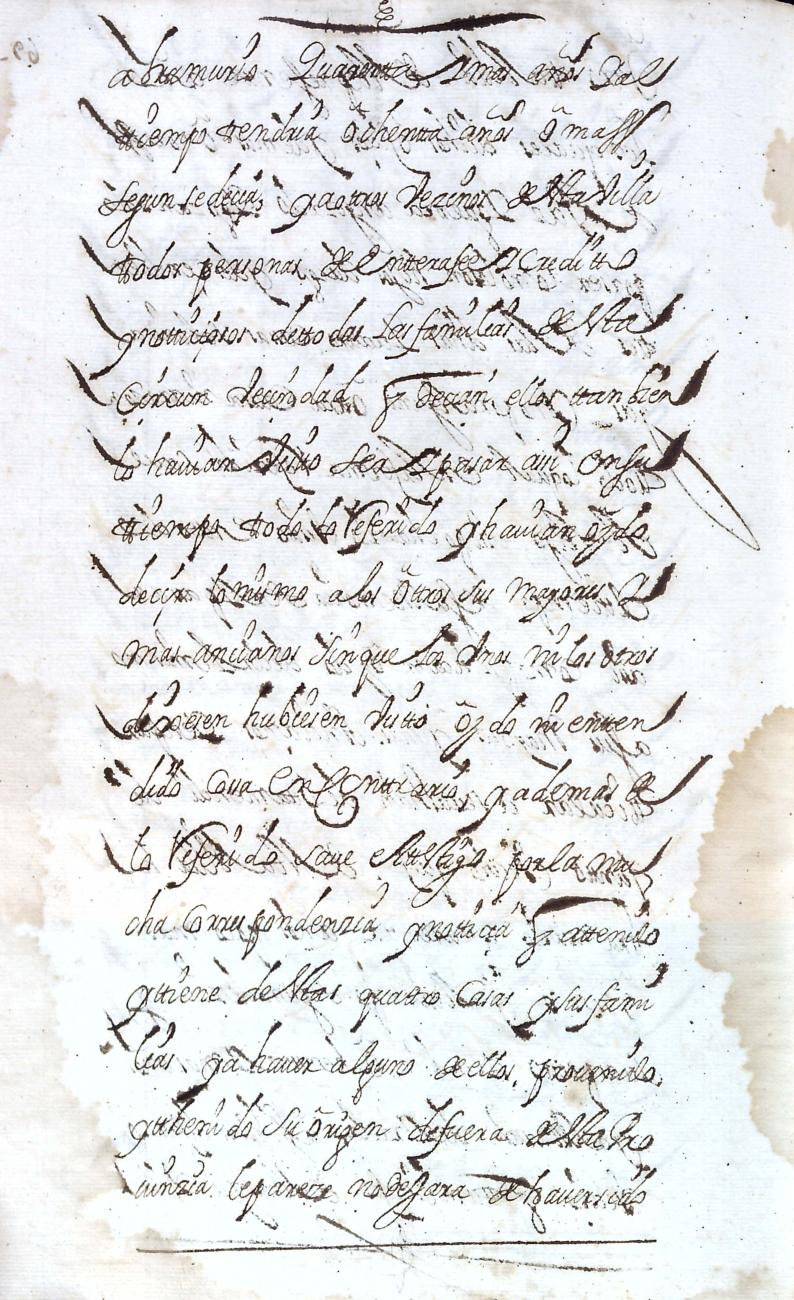 abra murio Quarenta y mas años y al
ttiempo ttendria ochentta años o mass
segun se decia, y a ottros vezinos de esta villa
ttodos personas de enttera fee y creditto
y notticiosos de ttodas las familias de esta
circum vecindad q decian ellos ttanbien
lo havian visto ser y pasar assi en su
ttiempo ttodo lo referido y havian oydo
decir lo mismo a los otros sus mayores y
mas ancianos sin que los unos ni los otros
dixesen hubiesen visto oydo ni enten
dido cosa en conttrario, y ademas de
lo referido save el ttestigo por la mu
cha correspondenzia y notticia q a ttenido
y ttiene de esttas quattro casas y sus fami
lias y a haver alguno de ellos, provenido,
y tthenido su origen de fuera de esta Pro
vinzia le pareze no dejara de haver sido